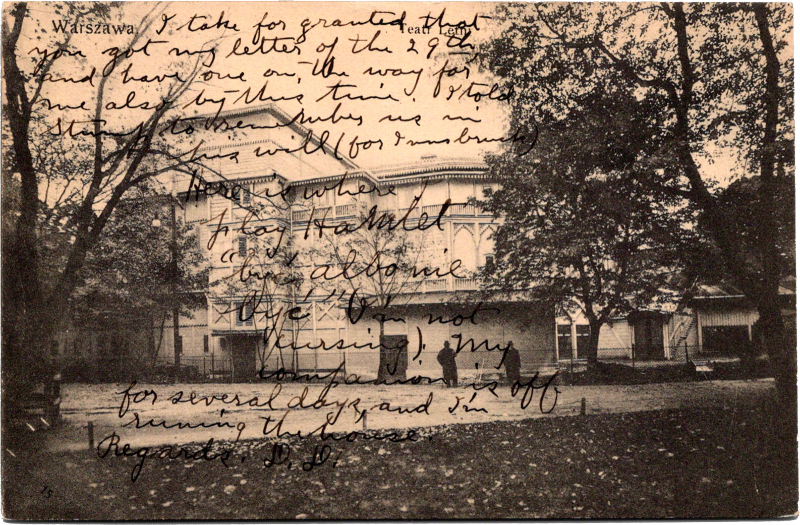 Warszawa. Teatr Letni
I take for granted that
you got my letter of the 29th,
and have one on the way for
me also by this time. I told
to remember us in
his will (for Innsbruck)
Here is where I
play Hamlet
"być albo nie
być" (I'm not
cursing). My
companion is off
for several days, and I'm
runing the house.
Regards. D. D.
15